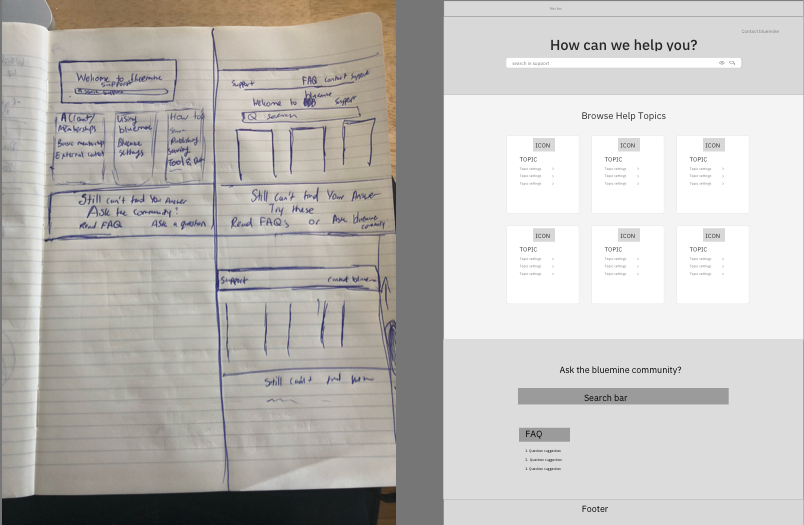 Welcome to bluemine
Support
Account/
Memberships
External
Using
bluemine
Bluemine
settings
How to
Publishing
Tool &
Still Can't find You Answer
Ask the Community?
Read FAQ Ask a question
Support FAQ Contact Support
Welcome to bluemine Support
Q search
Still Can't find Your Answer
Try these
Read FAQs or Ask bluemine
community
Support Contact bluemine
Still Can't find
Contact bluemine
How can we help you?
search in support
Browse Help Topics
ICON ICON ICON
TOPIC TOPIC TOPIC
Topic settings > Topic settings > Topic settings >
Topic settings > Topic settings > Topic settings >
Topic settings > Topic settings > Topic settings >
ICON ICON ICON
TOPIC TOPIC TOPIC
Topic settings > Topic settings > Topic settings >
Topic settings > Topic settings > Topic settings >
Topic settings > Topic settings > Topic settings >
Ask the bluemine community?
Search bar
FAQ
1. Question suggestion
2. Question suggestion
3. Question suggestion
Footer